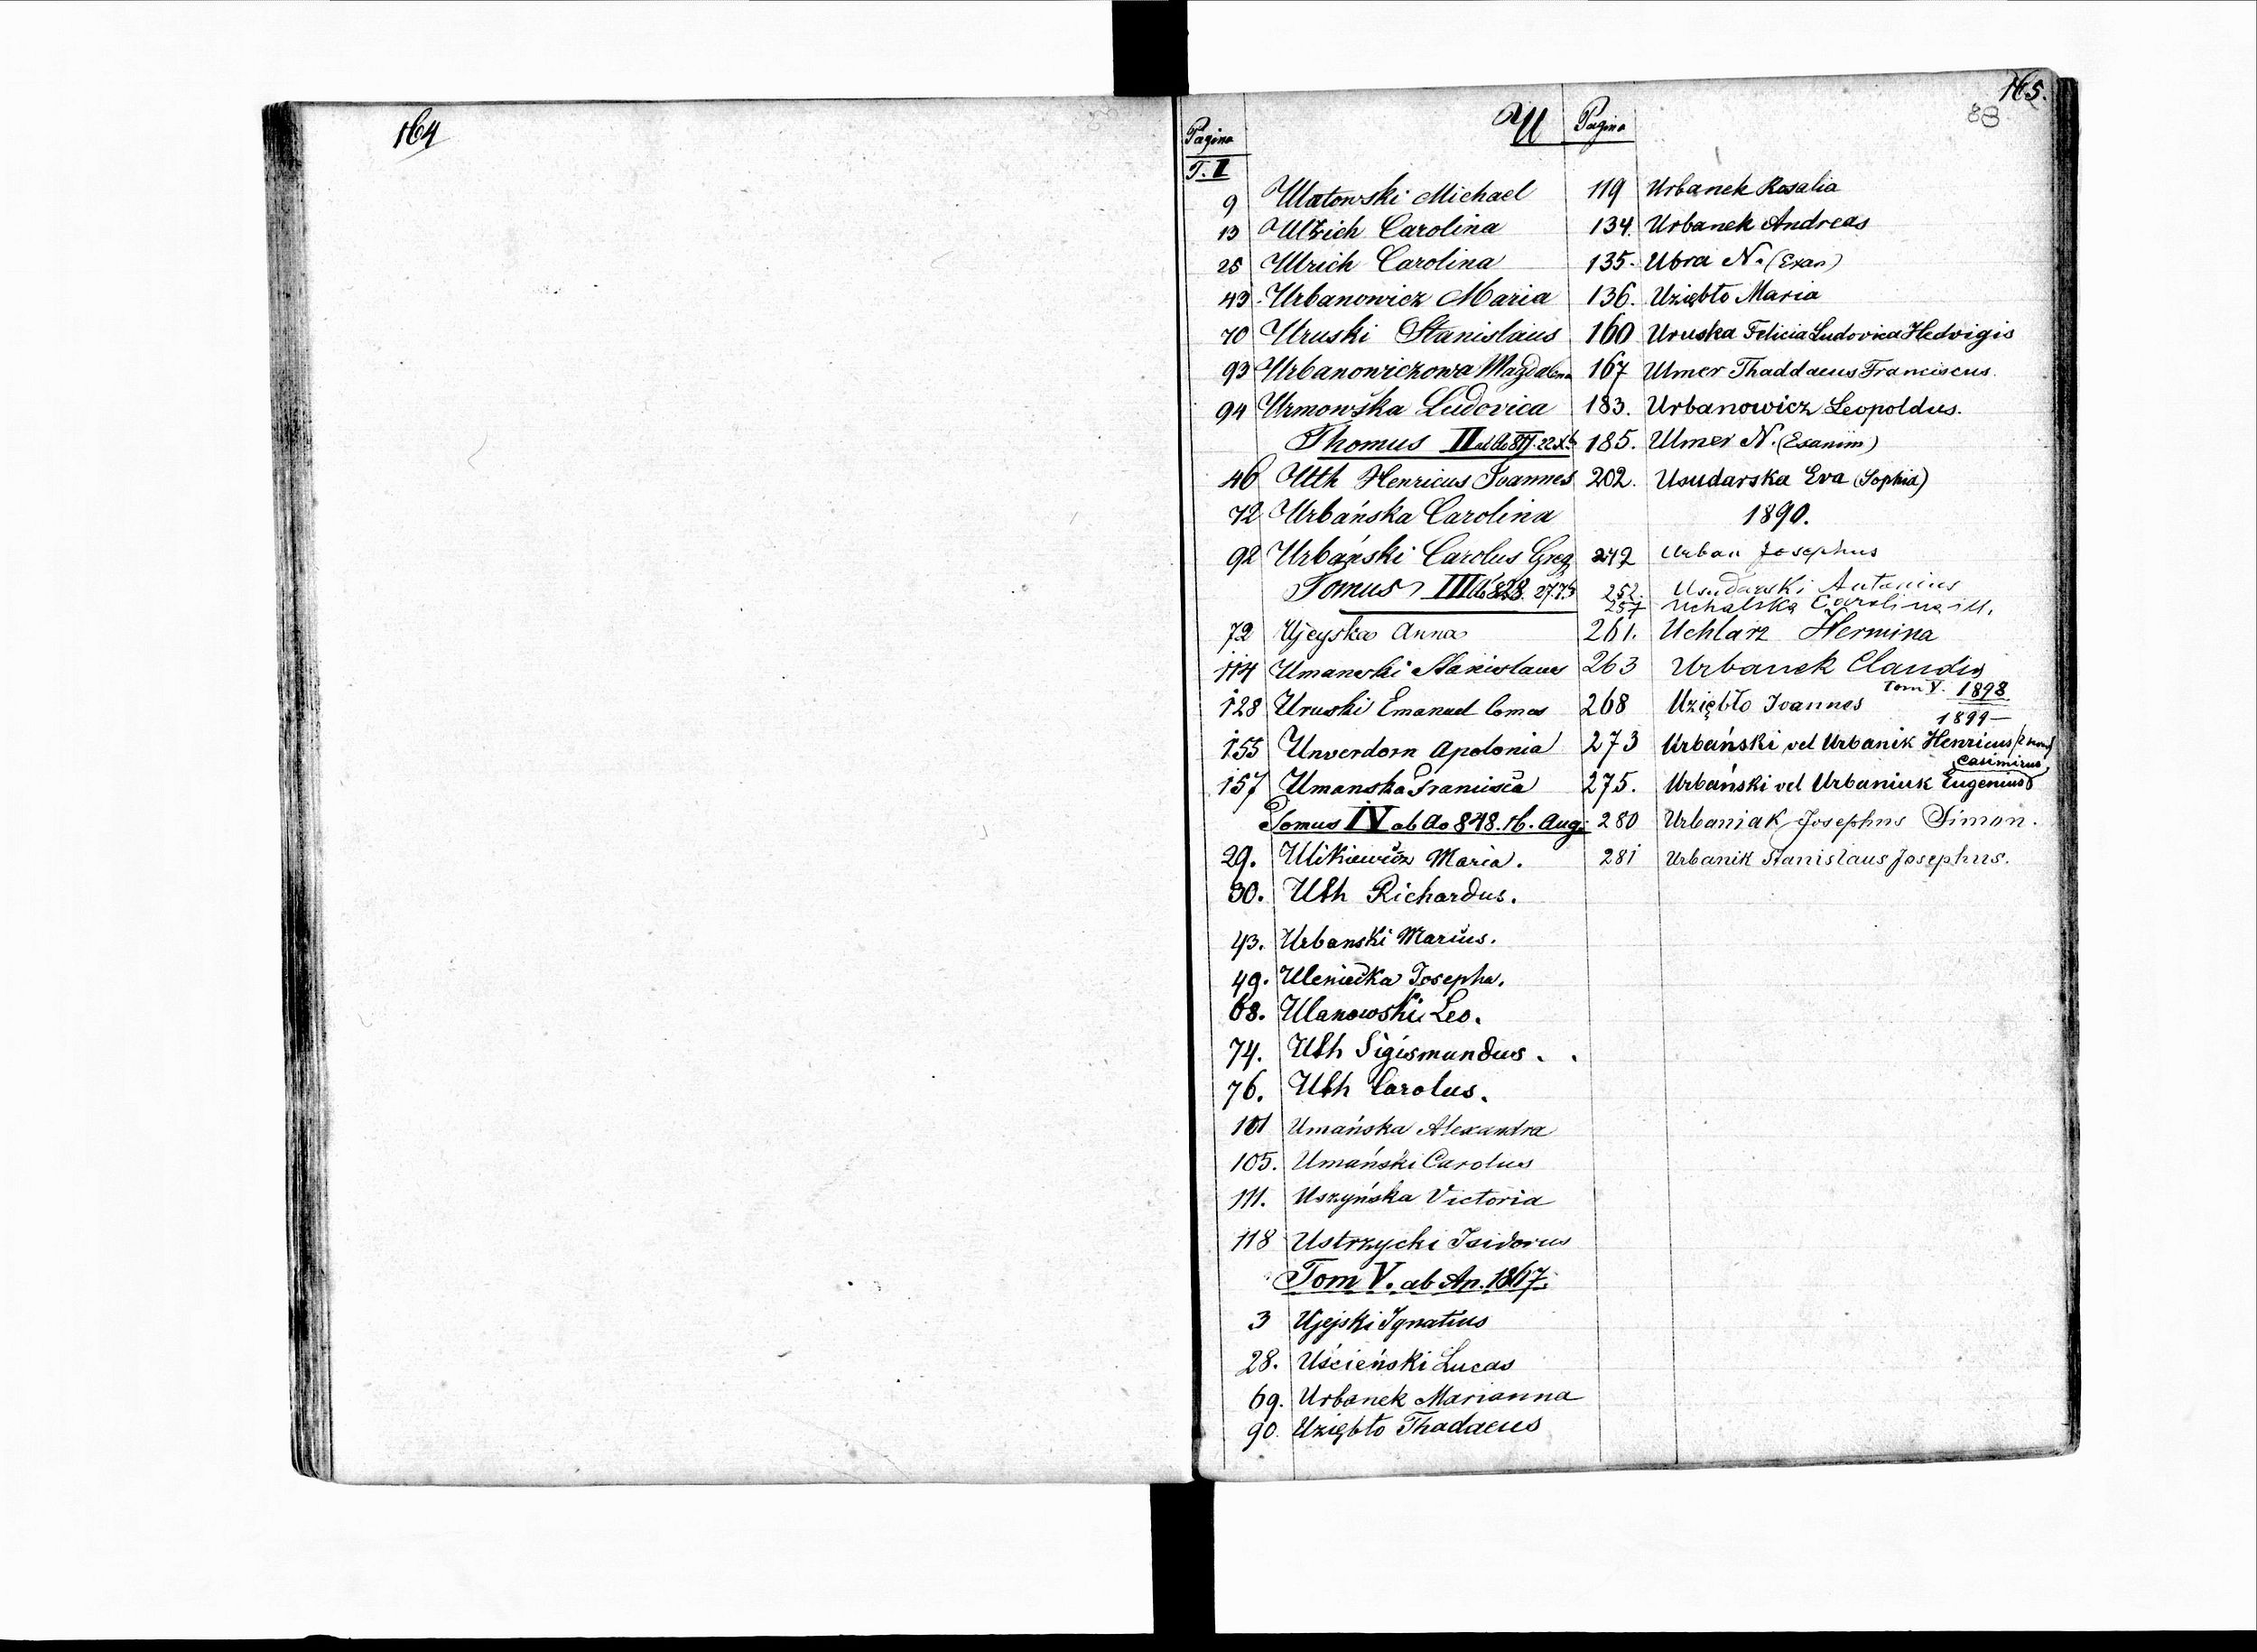 164
165.
88
U
Pagina
T. I
9 Ulatowski Michael
13 Ulrich Carolina
25 Ulrich Carolina
43 Urbanowicz Maria
70 Uruski Stanislaus
93 Urbanowiczowa Magdalena
94 Urmowska Ludovica
Thomus II
46 Uth Henricus Joannes
72 Urbańska Carolina
92 Urbański Carolus Greg
Tomus III
72 Ujeyska Anna
114 Umanski Stanislaus
128 Uruski Emanuel Comes
155 Unverdorn Apolonia
157 Umanska Francisca
Tomus IV ab Ao 848. 16. Aug.
29. Ulikiewicz Maria.
30. Uth Richardus.
43. Urbanski Marius.
49. Uleniecka Josepha.
68. Ulanowski Leo.
74. Uth Sigismundus.
76. Uth Carolus.
101 Umańska Alexandra
105. Umański Carolus
111. Uszyńska Victoria
118 Ustrzycki Isidorus
Tom V. ab An. 1867.
3 Ujejski Ignatius
28. Uścieński Lucas
69. Urbanek Marianna
90. Uziębło Thadaeus
Pagina
119 Urbanek Rosalia
134. Urbanek Andreas
135. Ubra N. (Exan)
136. Uziębło Maria
160 Uruska Felicia Ludovica Hedvigis
167 Ulmer Thaddaeus Franciscus.
183. Urbanowicz Leopoldus.
185. Ulmer N. (Exanim)
202. Usudarska Eva (Sophia)
1890.
242 Urban Josephus
252. Usudarski Antonius
257 Uchalska Carolina ill.
261. Uchlarz Hermina
263 Urbanek Claudia
Tom V. 1898
268 Uziębło Joannes
1899—
273 Urbański vel Urbanik Henricus
Casimirus
275. Urbański vel Urbaniuk Eugenius
280 Urbaniak Josephus Simon.
281 Urbanik Stanislaus Josephus.